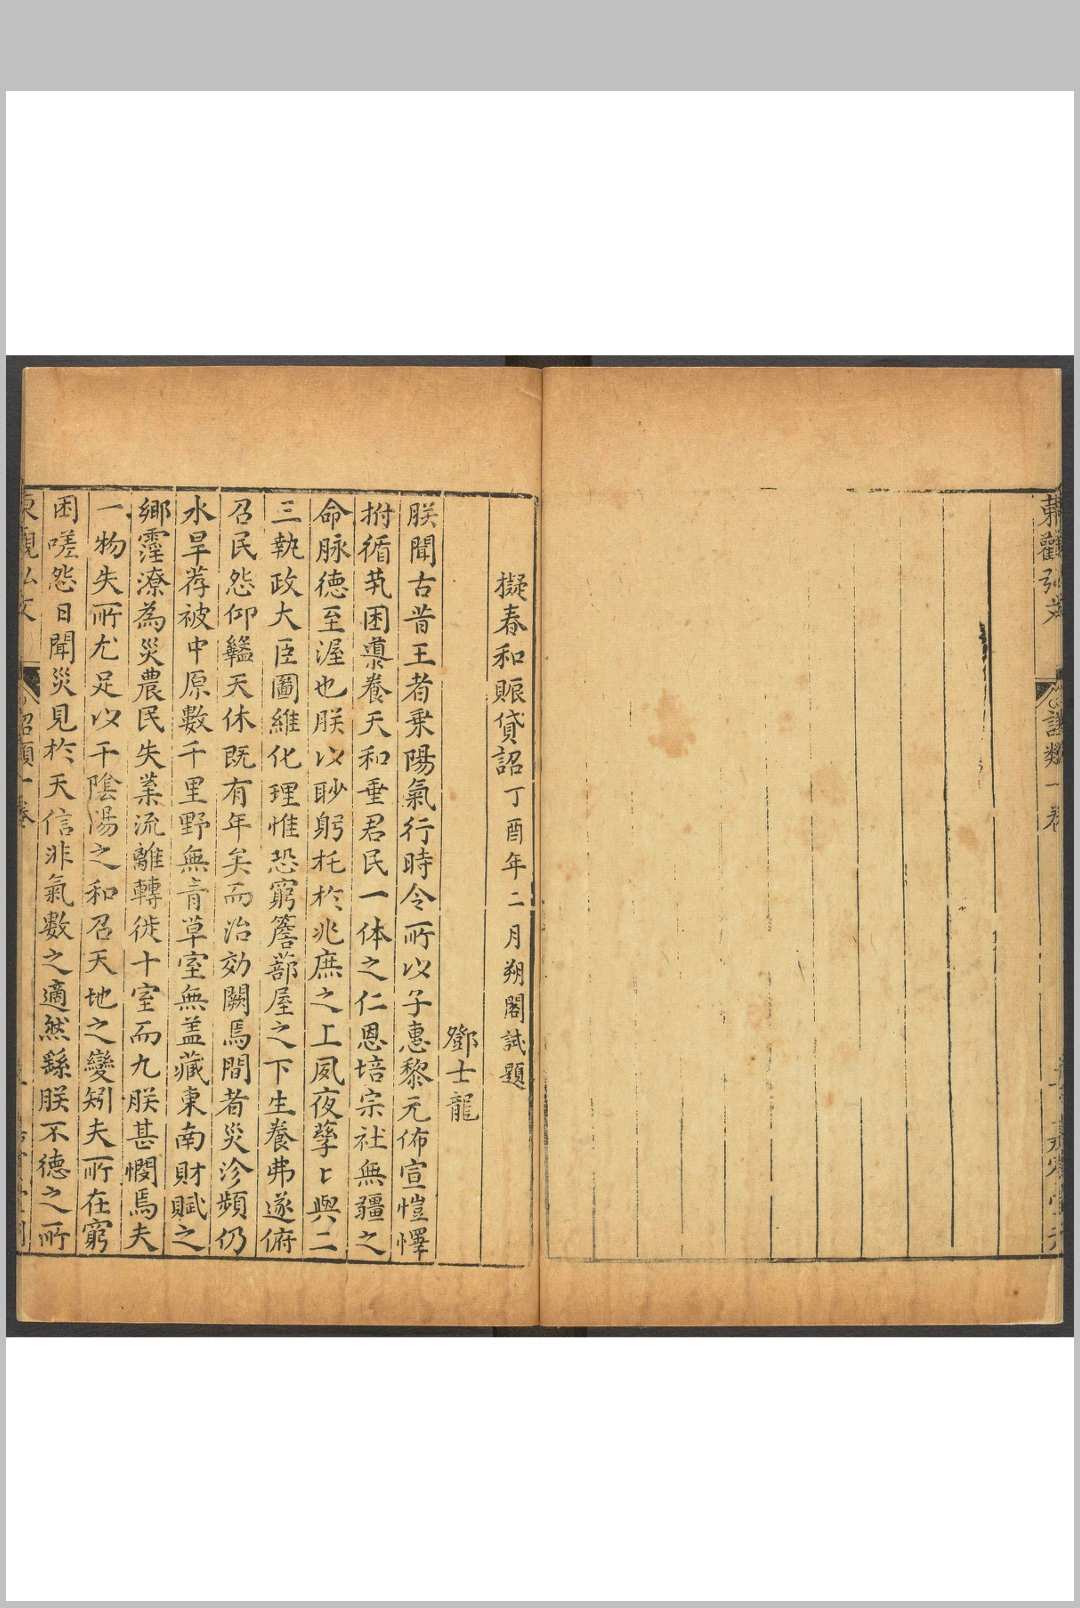 東觀弘文
詔類一卷
擬春和賑貸詔丁酉年二月朔閣試題
鄧士龍
朕聞古昔王者乗陽氣行時令所以子惠黎元佈宣愷懌
拊循㷀困導養天和垂君民一体之仁恩培宗社無疆之
命脉德至渥也朕以眇躬托於兆庶之上夙夜孳〻與二
三執政大臣圖維化理惟恐窮簷蔀屋之下生養弗遂俯
召民怨仰盭天休既有年矣而治効闕焉間者災沴頻仍
水旱荐被中原數千里野無青草室無盖藏東南財賦之
鄉霪潦為災農民失業流離轉徙十室而九朕甚憫焉夫
一物失所尤足以干陰陽之和召天地之變矧夫所在窮
困嗟怨日聞災見於天信非氣數之適然繇朕不德之所
東觀弘文
詔類一卷